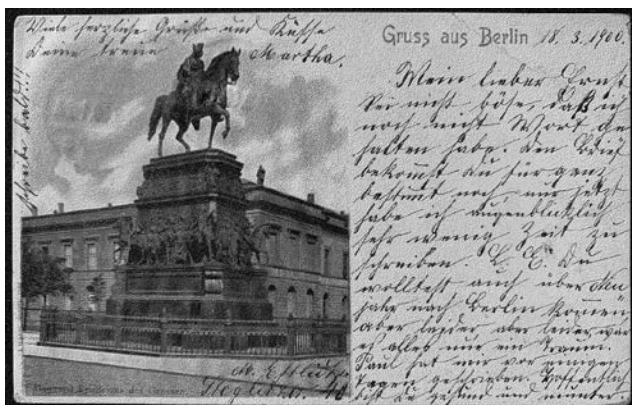 Viele herzliche Grüße und Küsse
Deine treue Martha.
schreibe bald!!!
Gruss aus Berlin 18.3.1900.
Mein lieber Ernst
Sei nicht böse, daß ich
noch nicht Wort ge
halten habe. Den Brief
bekommst du für ganz
bestimmt noch, nur jetzt
habe ich augenblicklich
sehr wenig Zeit zu
schreiben. L. E. Du
wolltest auch über Neu
jahr nach Berlin kommen
aber leider aber leider war
es alles nur ein Traum.
Paul hat mir vor einigen
Tagen geschrieben. Hoffentlich
bist Du gesund und munter.
Denkmal Friedrichs d. Grossen.